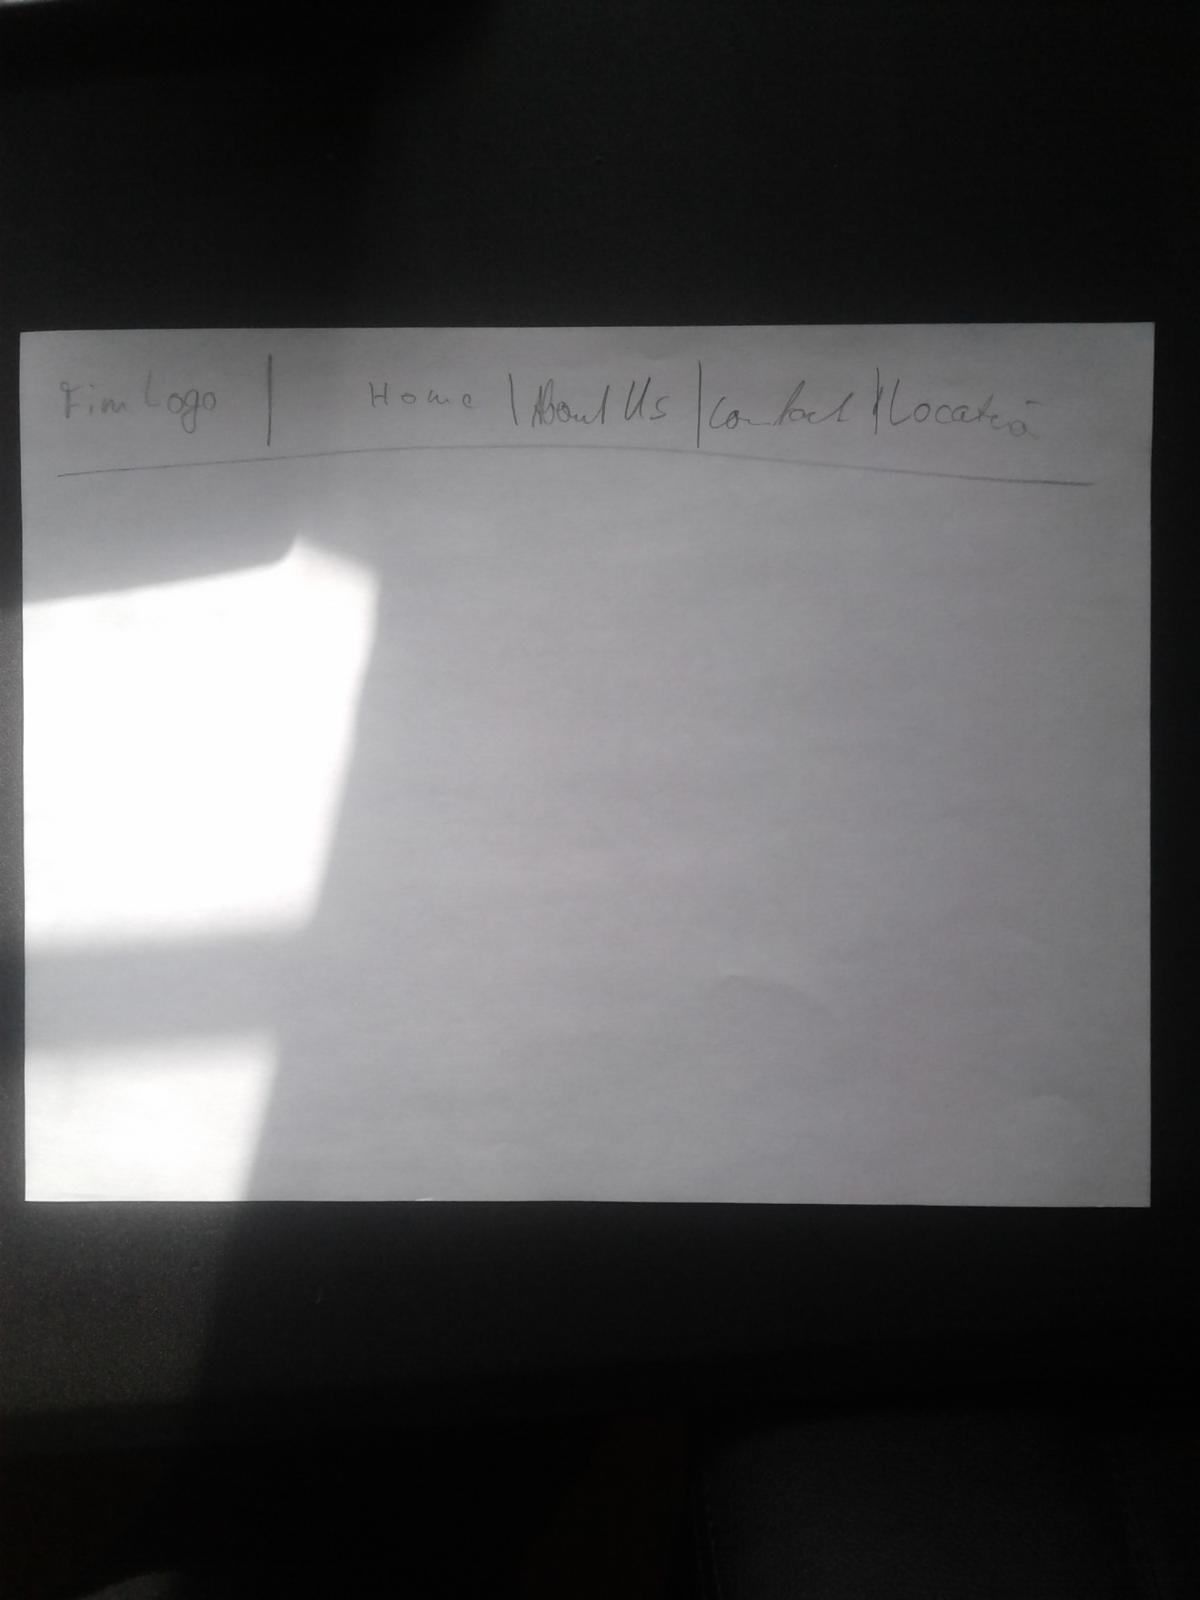 Fim Logo | Home | About Us | Contact | Location